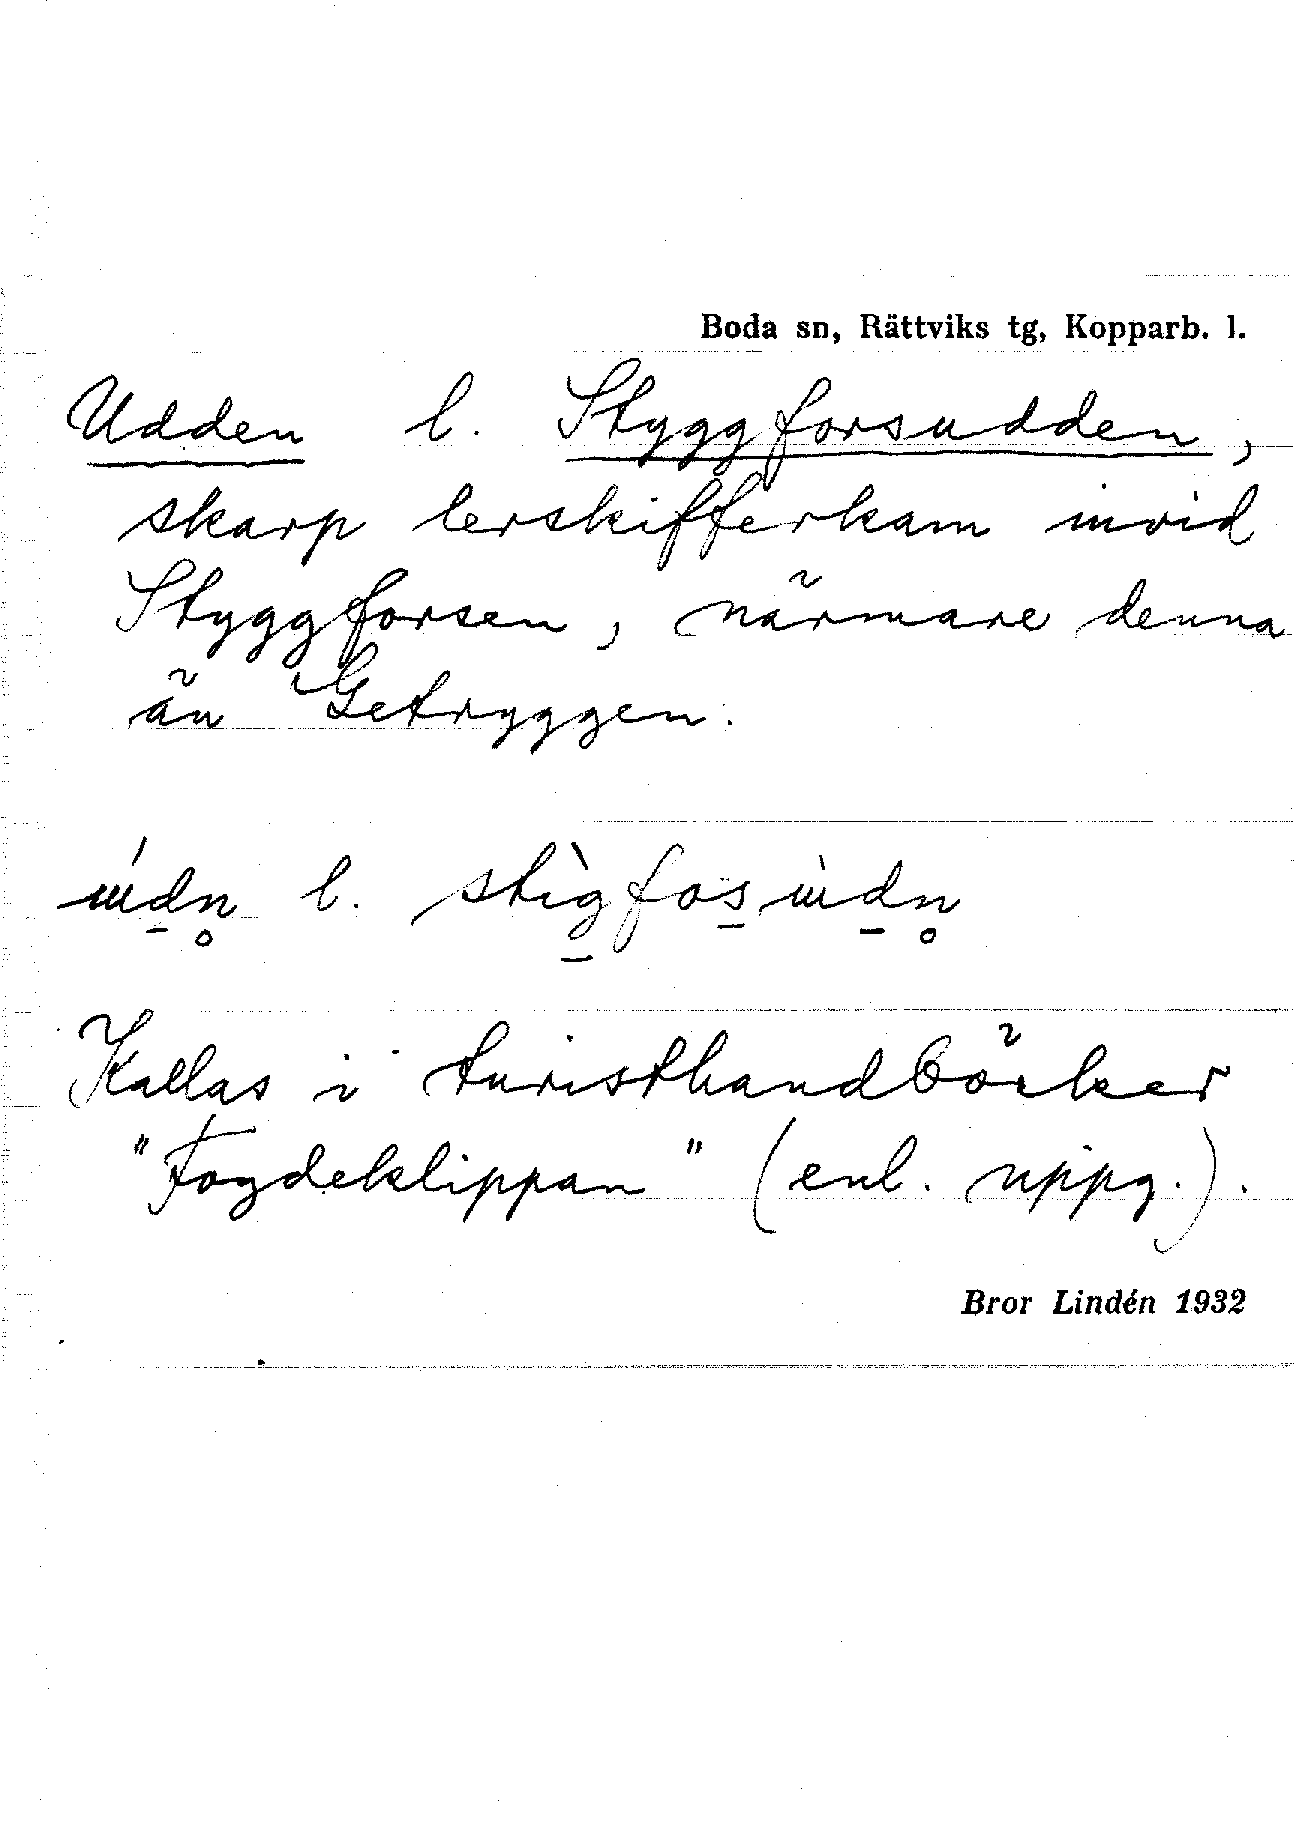 Boda sn, Rättviks tg, Kopparb. l.
Udden l. Styggforsudden,
skarp lerskifferkam invid
Styggforsen, närmare denna
än Getryggen.
l.
Kallas i turisthandböcker
"Fogdeklippan" (enl. uppg.).
Bror Lindén 1932